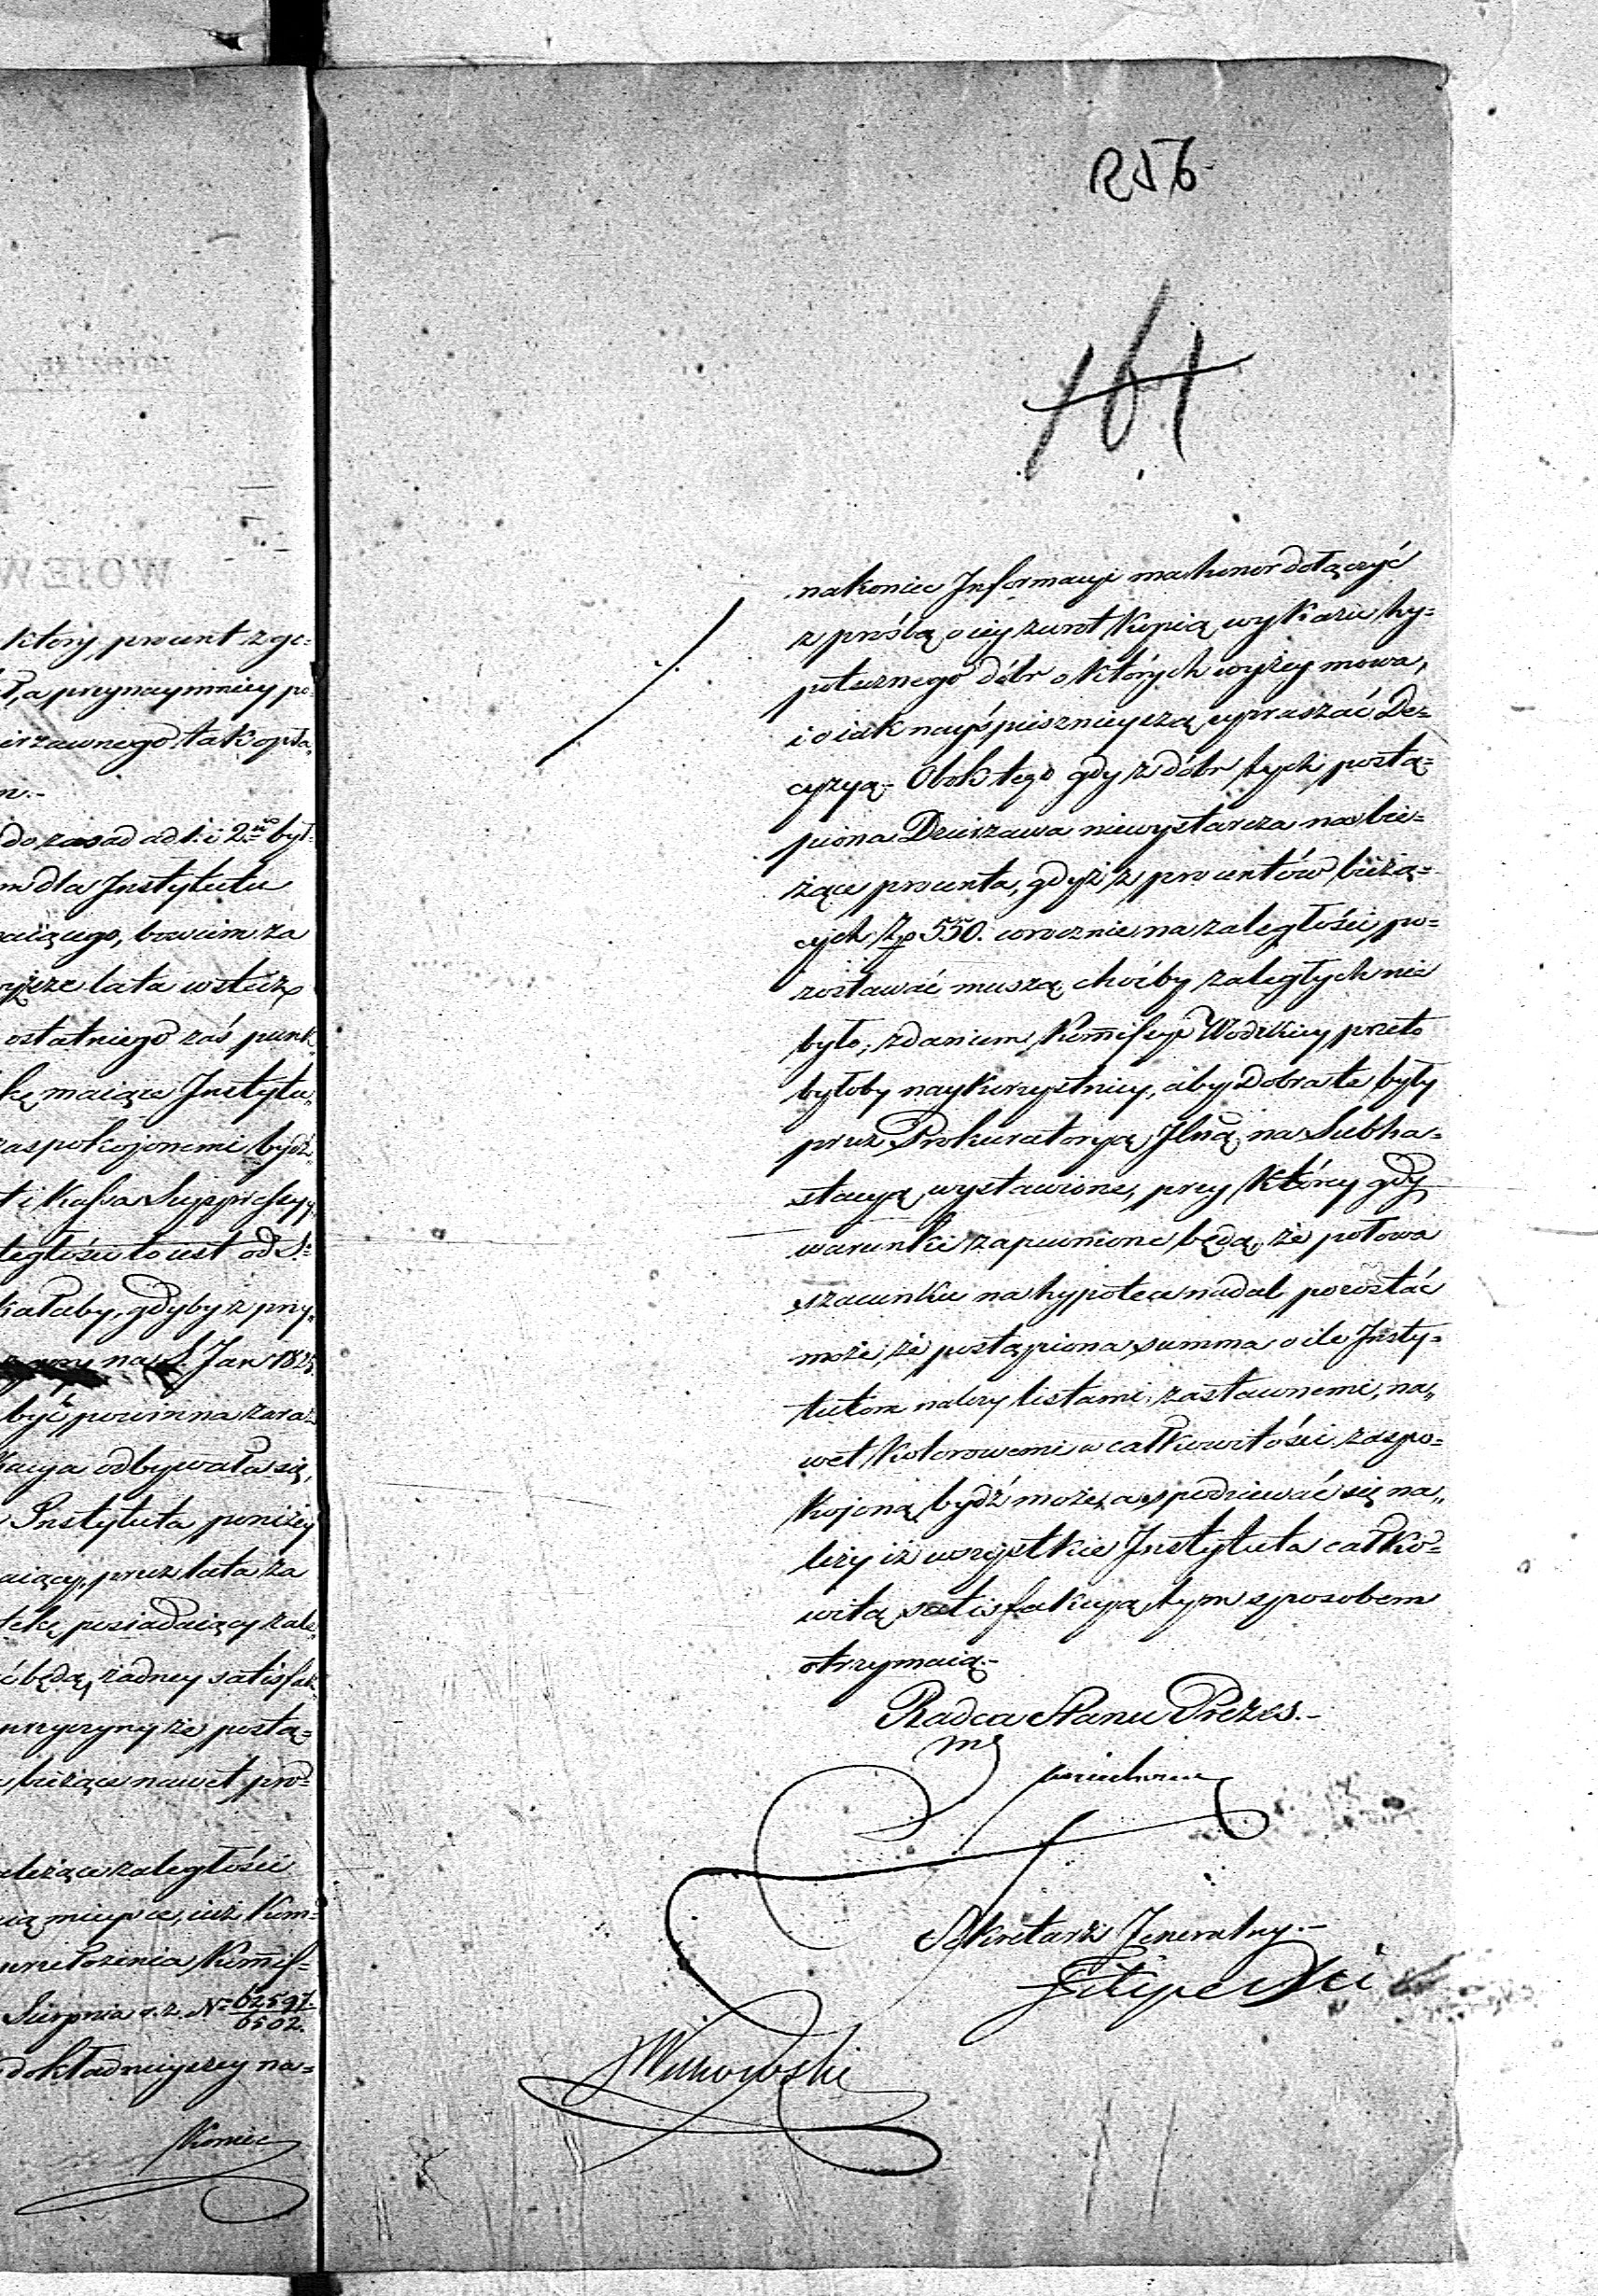 który procent z ge-
a przynaymniey po-
irzawnego, tak opła,
do zasad ad 1. i 2.do był-
m dla Instytutu
aiącego, bowiem za
wyższe lata wstecz
ostatniego zaś punk
kę maiące Instytu,
zaspokojonemi bydź
t i Kassa Suppressyy,
ległości to iest od S.
kałaby, gdyby z przy,
na S. Jan 1825.
być powinna zaraz
kacya odbywała się,
Instytuta poniżey
aiący, przez lata za
tekę posiadaiący zale,
ć będą, żadney satisfak
przyczyny że postą=
bieżące nawet pro=
bieżące zaległości
ią mieysce, iuż Kom=
przełożenia Kommis=
Sierpnia r. z. No 62597/6502.
dokładnieyszey na=
Koniec
R 56
161
nakoniec Informacyi ma honor dołączyć
z prośbą o iey zwrot Kopią wykazu hy=
potecznego dóbr o których wyżey mowa,
i o iak nayśpiesznieyszą upraszać De=
cyzyą.- Obok tego gdy z dóbr tych postą=
piona Dzierzawa niewystarcza na bie=
żące procenta, gdyż z procentów bieżą=
cych Zp 550. corocznie na zaległości po=
zostawać muszą, choćby zaległych nie
było; zdaniem Kommissyi Wodzkiey przeto
byłoby naykorzystniey, aby Dobra te były
przez Prokuratoryą Jlną na Subha=
stacyą wystawione, przy którey gdy
warunki zapewnione będą, że połowa
szacunku na hypotece nadal pozostać
może, że postąpiona summa o ile Insty=
tutom należy listami zastawnemi, na,,
wet kolorowemi w całkowitości zaspo=
kojoną bydź może, a spodziewać się na,,
leży iż wszystkie Instytuta całko=
witą satisfakcyą tym sposobem
otrzymaią.-
Radca Stanu Prezes.-
Sekretarz Jeneralny.-
Filipecki